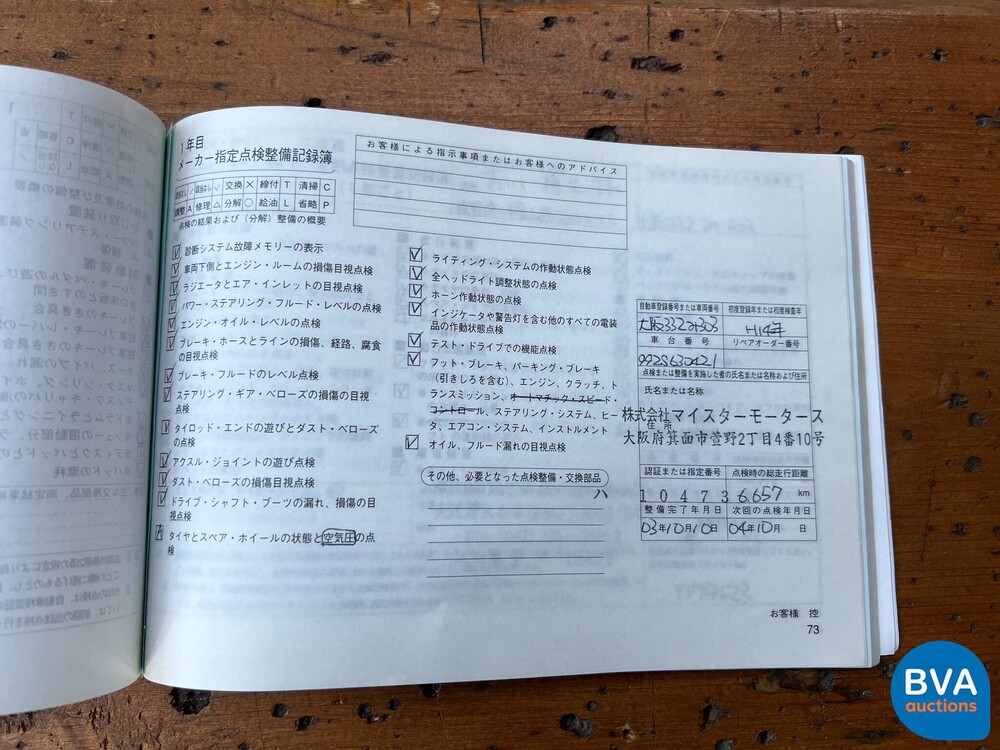 1年目
メーカー指定点検整備記録簿
交換 × 締付 T 清掃 C
調整 A 修理 △ 分解 ○ 給油 L 省略 P
点検の結果および(分解)整備の概要
診断システム故障メモリーの表示
車両下側とエンジン・ルームの損傷目視点検
ラジエータとエア・インレットの目視点検
パワー・ステアリング・フルード・レベルの点検
エンジン・オイル・レベルの点検
ブレーキ・ホースとラインの損傷、経路、腐食
の目視点検
ブレーキ・フルードのレベル点検
ステアリング・ギア・ベローズの損傷の目視
点検
タイロッド・エンドの遊びとダスト・ベローズ
の点検
アクスル・ジョイントの遊び点検
ダスト・ベローズの損傷目視点検
ドライブ・シャフト・ブーツの漏れ、損傷の目
視点検
タイヤとスペア・ホイールの状態と空気圧の点
検
お客様による指示事項またはお客様へのアドバイス
ライティング・システムの作動状態点検
全ヘッドライト調整状態の点検
ホーン作動状態の点検
インジケータや警告灯を含む他のすべての電装
品の作動状態点検
テスト・ドライブでの機能点検
フット・ブレーキ、パーキング・ブレーキ
(引きしろを含む)、エンジン、クラッチ、ト
ランスミッション、オートマチック・スピード・
コントロール、ステアリング・システム、ヒー
タ、エアコン・システム、インストルメント
オイル、フルード漏れの目視点検
その他、必要となった点検整備・交換部品
自動車登録番号または車両番号 初度登録年または初度検査年
大阪332そ1303 H14年
車台番号 リペアオーダー番号
992S630421
点検または整備を実施した者の氏名または名称および住所
氏名または名称
株式会社マイスターモータース
住所
大阪府箕面市萱野2丁目4番10号
認証または指定番号 点検時の総走行距離
10473 6.657 km
整備完了年月日 次回の点検年月日
03年10月10日 04年10月 日
お客様 控
73
BVA
auctions